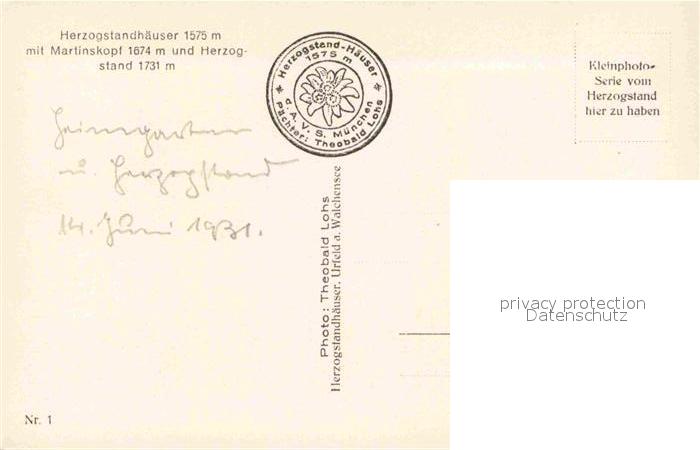 Herzogstandhäuser 1575 m
mit Martinskopf 1674 m und Herzog-
stand 1731 m
Herzogstand-Häuser
1575 m
d. A. V. S. München
Pächter: Theobald Lohs
Kleinphoto-
Serie vom
Herzogstand
hier zu haben
Heimgarten
u. Herzogstand
14. Juni 1931.
Photo: Theobald Lohs
Herzogstandhäuser, Urfeld a. Walchensee
privacy protection
Datenschutz
Nr. 1